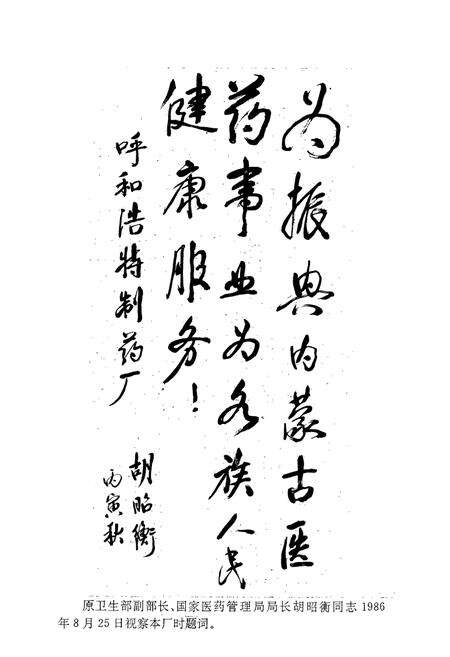 为振兴内蒙古医
药事业为各族人民
健康服务！
呼和浩特制药厂
胡昭衡
丙寅秋
原卫生部副部长、国家医药管理局局长胡昭衡同志 1986
年 8 月 25 日视察本厂时题词。